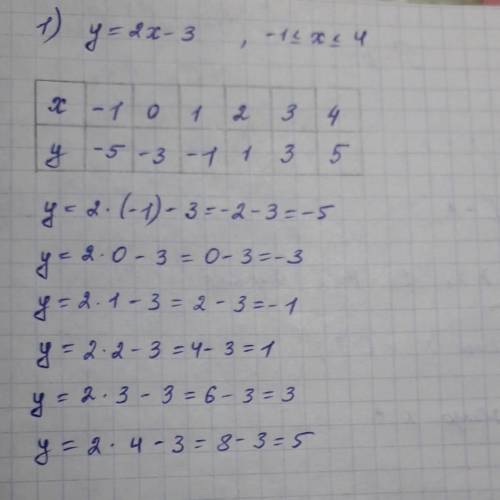 1) y = 2x - 3 , -1 ≤ x ≤ 4
x -1 0 1 2 3 4
y -5 -3 -1 1 3 5
y = 2 · (-1) - 3 = -2 - 3 = -5
y = 2 · 0 - 3 = 0 - 3 = -3
y = 2 · 1 - 3 = 2 - 3 = -1
y = 2 · 2 - 3 = 4 - 3 = 1
y = 2 · 3 - 3 = 6 - 3 = 3
y = 2 · 4 - 3 = 8 - 3 = 5